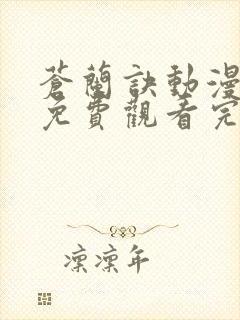 蒼蘭訣動漫
免費觀看完
凛凛年